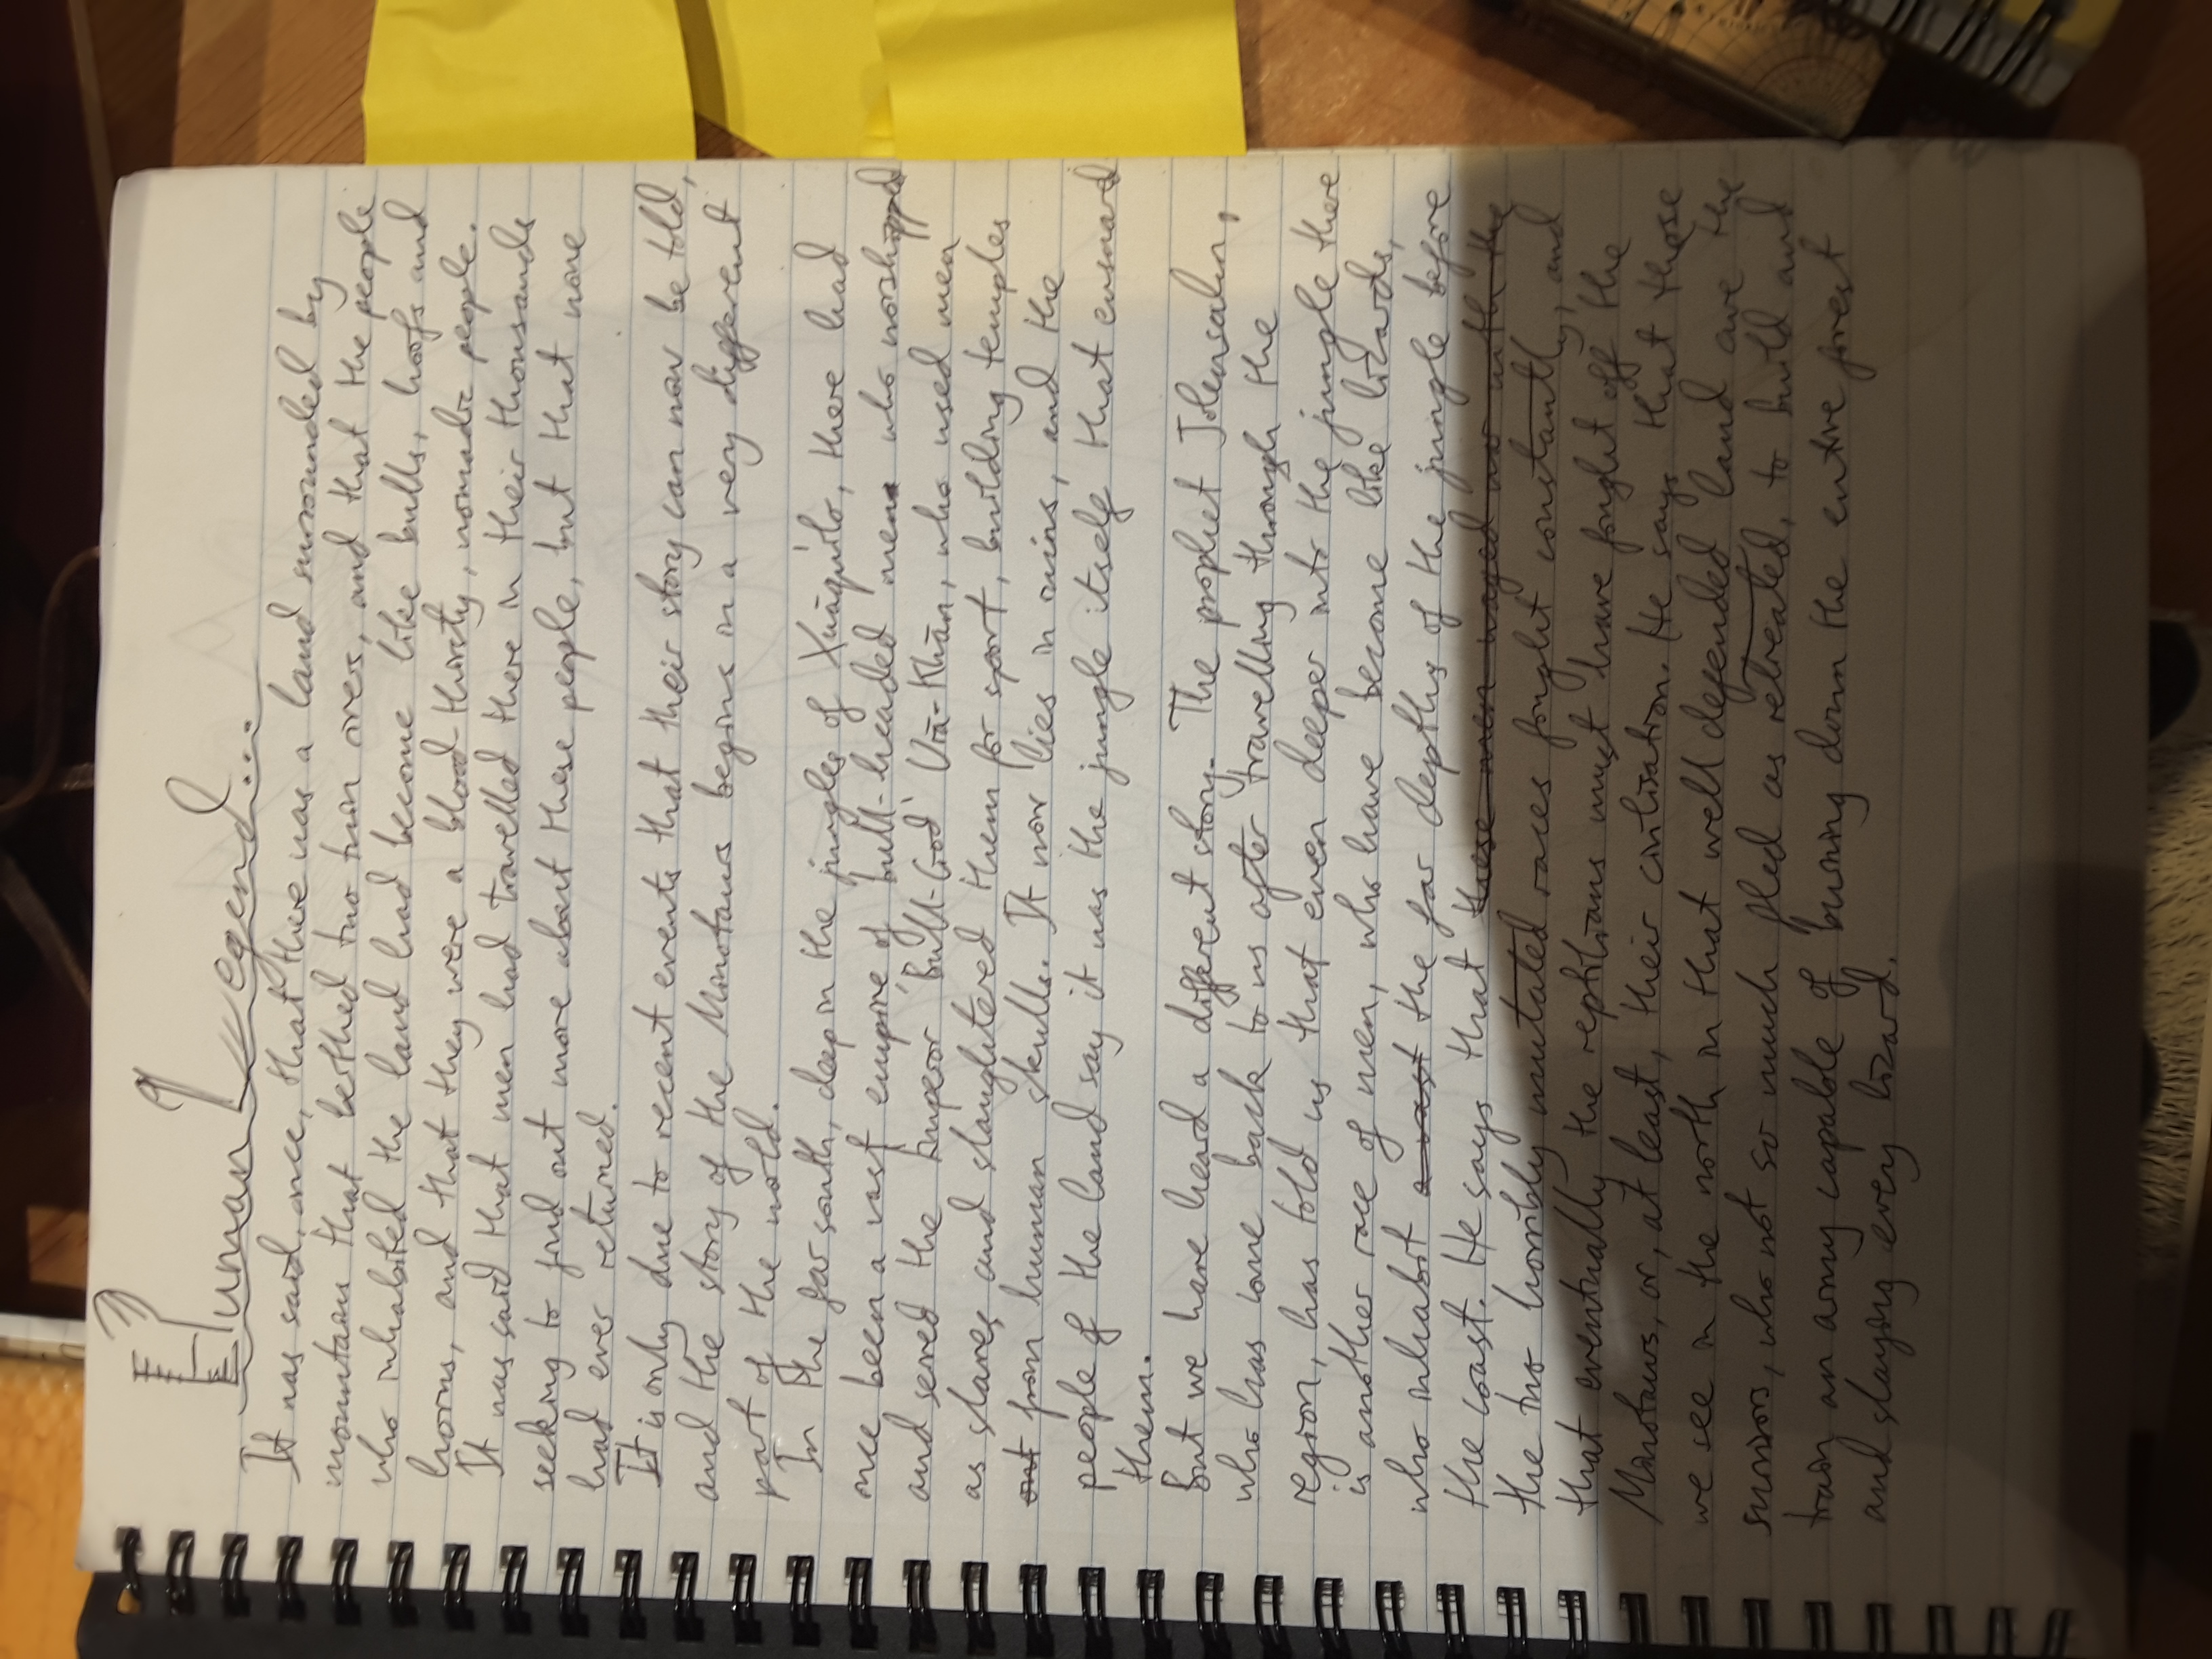 Human Legend...
It was said, once, that there was a land surrounded by
mountains that berthed two twin rivers, and that the people
who inhabited the land had become like bulls, hoofs and
horns, and that they were a blood-thirsty, nomadic people.
It was said that men had travelled there in their thousands
seeking to find out more about these people, but that none
had ever returned.
It is only due to recent events that their story can now be told,
and the story of the Minotaurs begins in a very different
part of the world.
In the far south, deep in the jungles of there had
once been a vast empire of bull-headed men who worshipped
and served the Emperor 'Bull-God' Urā-Khān, who used men
as slaves and slaughtered them for sport, building temples
out from human skulls. It now lies in ruins, and the
people of the land say it was the jungle itself that ensnared
them.
But we have heard a different story. The prophet
who has come back to us after travelling through the
region, has told us that even deeper into the jungle there
is another race of men, who have become like lizards,
who inhabit a vast the far depths of the jungle before
the coast. He says that these men waged war with the
the two horribly mutated races fought constantly, and
that eventually the reptilians must have fought off the
Minotaurs, or, at least, their civilisation. He says that those
we see in the north in that well defended land are the
survivors, who not so much fled as retreated, to build and
train an army capable of burning down the entire forest
and slaying every lizard.